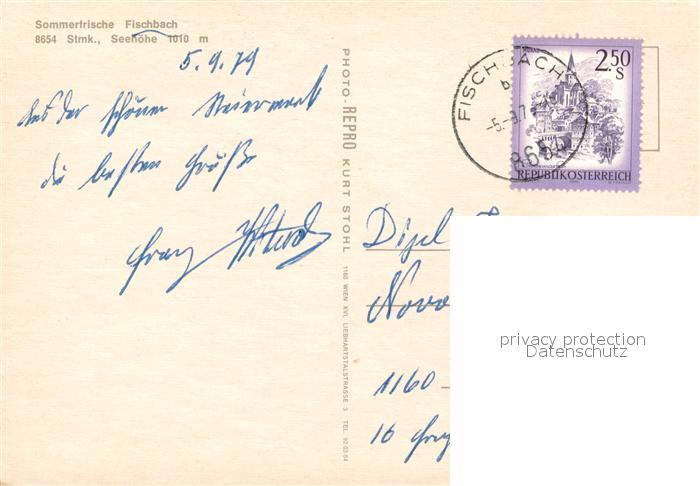 Sommerfrische Fischbach
8654 Stmk., Seehöhe 1010 m
5.9.79
Aus der schönen Steiermark
die besten Grüße
Franz
PHOTO-REPRO KURT STOHL
1160 WIEN XVI, LIEBHARTSTALSTRASSE 3 TEL. 92 03 54
FISCHBACH
8654
MURAU
2.50
S
REPUBLIK ÖSTERREICH
1160
16
privacy protection
Datenschutz